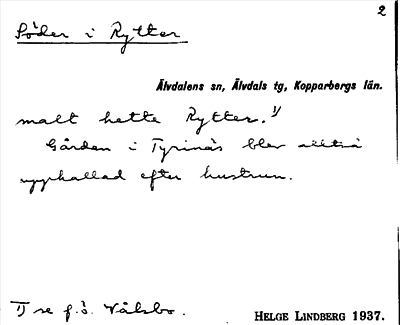 2
Söder i Rytter
Älvdalens sn, Älvdals tg, Kopparbergs län.
malt hette Rytter. 1)
Gården i Tyrinäs blev alltså
uppkallad efter hustrun.
1) se f.ö. Våsbo.
HELGE LINDBERG 1937.